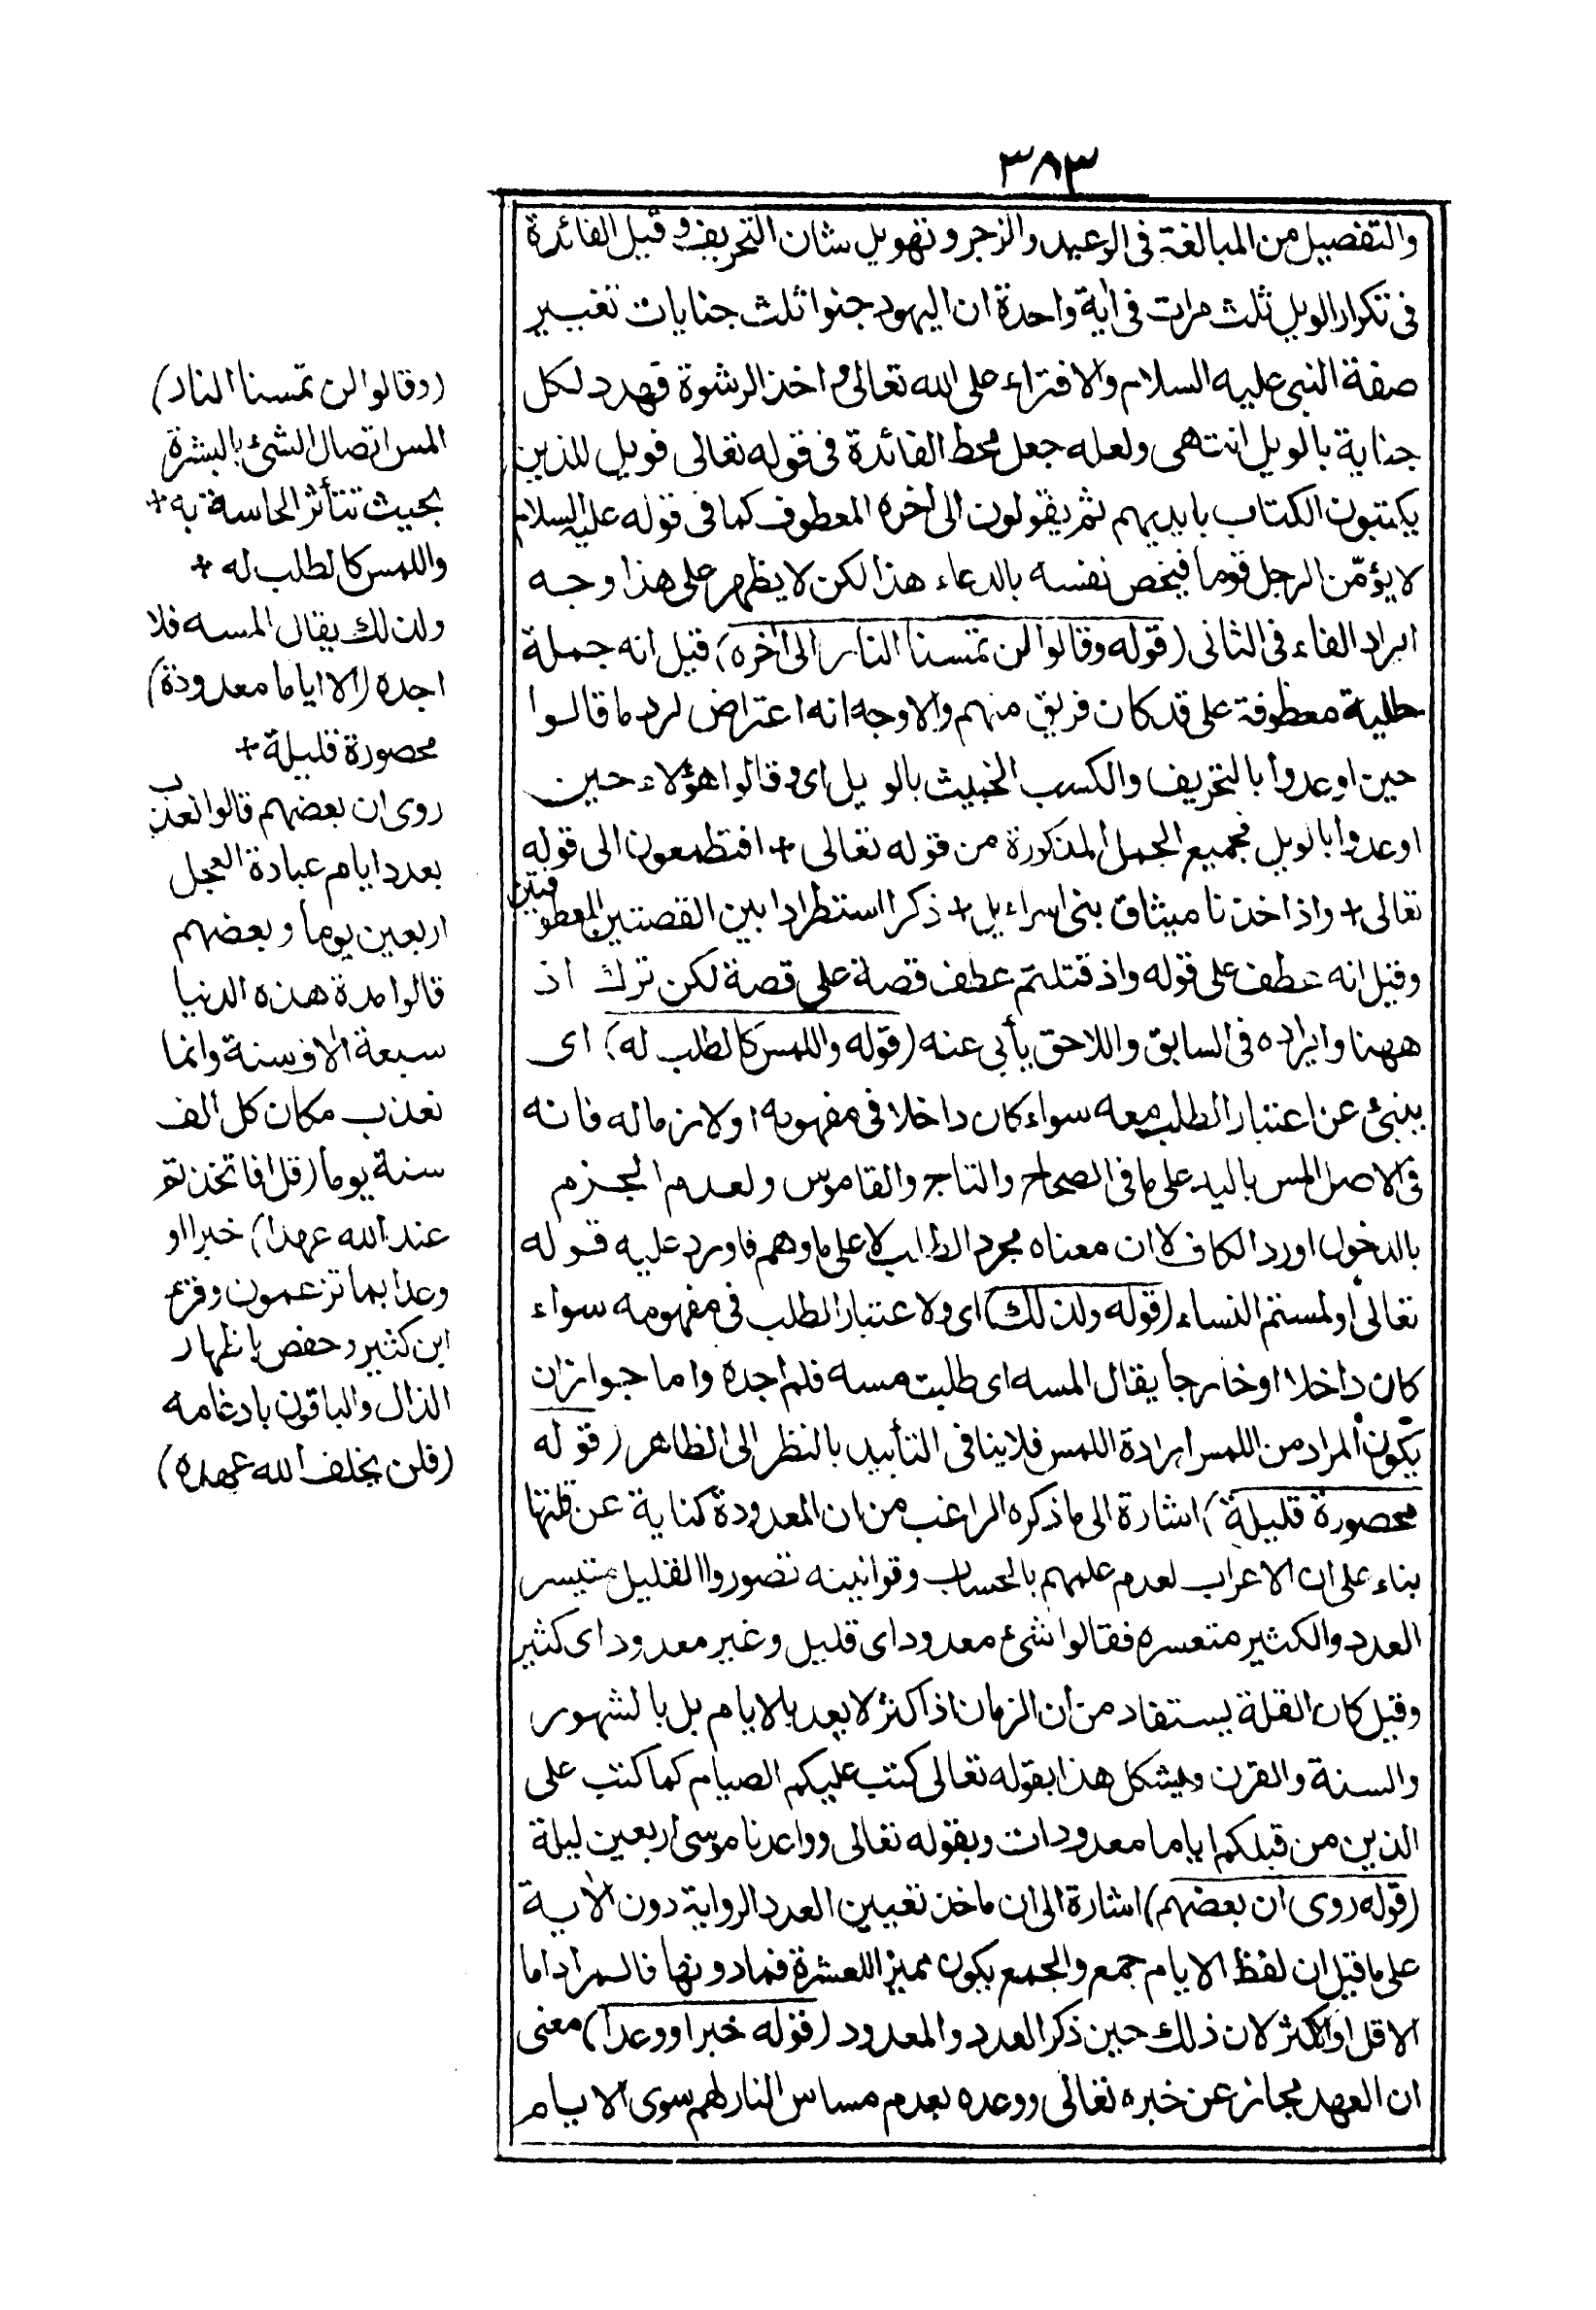 ٣٨٣
والتفصيل من المبالغة فى الوعيد والزجر وتهويل شان التحريف وقيل الفائدة
فى تكرار الويل ثلث مرات فى أية واحدة ان اليهود جنوا ثلث جنايات تغيير
صفة النبى عليه السلام والافتراء على الله تعالى واخذ الرشوة فهدد لكل
جناية بالويل انتهى ولعله جعل محط الفائدة فى قوله تعالى فويل للذين
يكتبون الكتاب بايديهم ثم يقولون الى أخره المعطوف كما فى قوله عليه السلام
لا يؤمّن الرجل قوما فيخص نفسه بالدعاء هذا لكن لا يظهر على هذا وجه
ايراد الفاء فى الثانى (قوله وقالوا لن تمسنا النار الى أخره) قيل انه جملة
حالية معطوفة على قد كان فريق منهم والاوجه انه اعتراض لرد ما قالوا
حين اوعدوا بالتحريف والكسب الخبيث بالويل اى وقالوا هؤلاء حين
اوعدوا بالويل فجميع الجمل المذكورة من قوله تعالى + افتطمعون الى قوله
تعالى + واذ اخذنا ميثاق بنى اسراءيل + ذكر استطرادا بين القصتين المعطوفتين
وقيل انه عطف على قوله واذ قتلتم عطف قصة على قصة لكن ترك اذ
ههنا وايراده فى السابق واللاحق يأبى عنه (قوله واللمس كالطلب له) اى
ينبئ عن اعتبار الطلب معه سواء كان داخلا فى مفهومه او لازماله فانه
فى الاصل المس باليد على ما فى الصحاح والتاج والقاموس ولعدم الجزم
بالدخول اورد الكاف لا ان معناه مجرد الطلب لا على ما وهم فاورد عليه قوله
تعالى أو لمستم النساء (قوله ولذلك) اى ولاعتبار الطلب فى مفهومه سواء
كان داخلا او خارجا يقال المسه اى طلبت مسه فلم اجده واما جواز ان
يكون المراد من اللمس ارادة اللمس فلا ينافى التأييد بالنظر الى الظاهر (قوله
محصورة قليلة) اشارة الى ما ذكره الراغب من ان المعدودة كناية عن قلتها
بناء على ان الاعراب لعدم علمهم بالحساب وقوانينه تصوروا القليل متيسر
العدد والكثير متعسره فقالوا شئ معدود اى قليل وغير معدود اى كثير
وقيل كان القلة يستفاد من ان الزمان اذا كثر لا يعد بالايام بل بالشهور
والسنة والقرن ويشكل هذا بقوله تعالى كتب عليكم الصيام كما كتب على
الذين من قبلكم اياما معدودات وبقوله تعالى وواعدنا موسى اربعين ليلة
(قوله روى ان بعضهم) اشارة الى ان ماخذ تعيين العدد الرواية دون الأية
على ما قيل ان لفظ الايام جمع والجمع يكون مميز اللعشرة فما دونها فالمراد اما
الاقل او الاكثر لان ذلك حين ذكر العدد والمعدود (قوله خبرا ووعدا) معنى
ان العهد مجاز عن خبره تعالى ووعده بعدم مساس النار لهم سوى الايام
(وقالوا لن تمسنا النار)
المس اتصال الشئ بالبشرة
بحيث تتأثر الحاسة به +
واللمس كالطلب له +
ولذلك يقال المسه فلا
اجده (الا اياما معدودة)
محصورة قليلة +
روى ان بعضهم قالوا نعذب
بعدد ايام عبادة العجل
اربعين يوما وبعضهم
قالوا مدة هذه الدنيا
سبعة الاف سنة وانما
نعذب مكان كل الف
سنة يوما (قل اتخذتم
عند الله عهدا) خبرا او
وعدا بما تزعمون وقرئ
ابن كثير وحفص باظهار
الذال والباقون بادغامه
(فلن يخلف الله عهده)